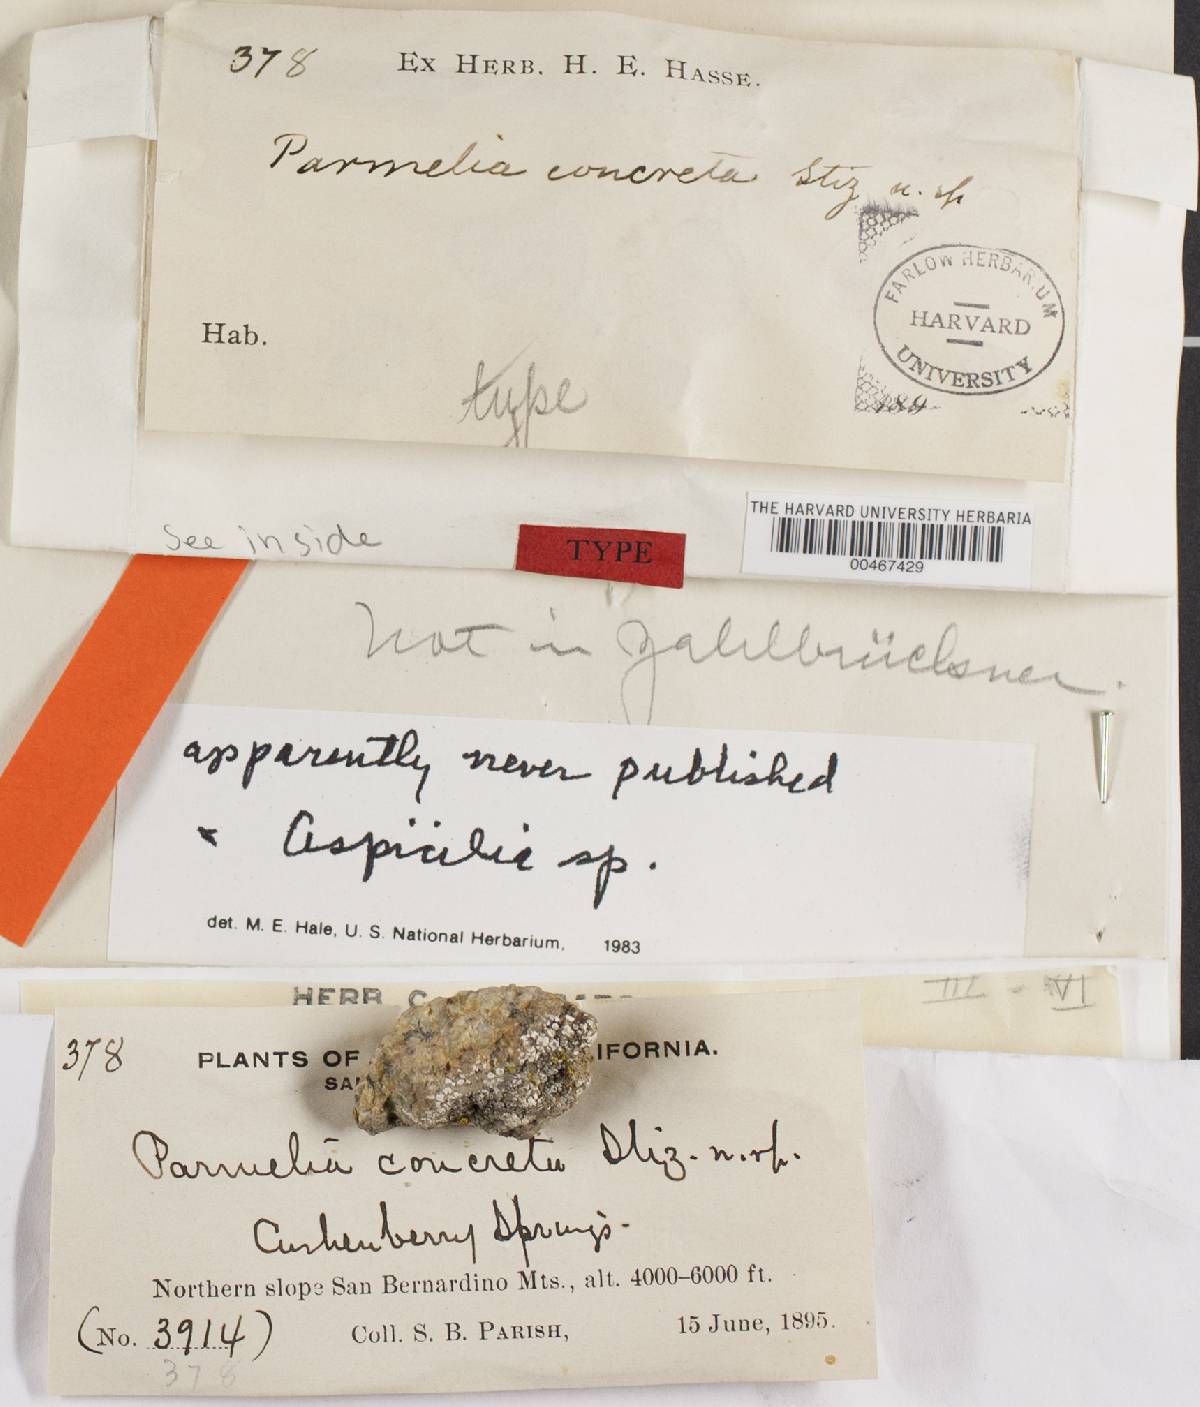 378 Ex Herb. H. E. Hasse.
Parmelia concreta Stiz n. sp
FARLOW HERBARIUM
HARVARD
UNIVERSITY
Hab.
type
189
See inside
TYPE
THE HARVARD UNIVERSITY HERBARIA
00467429
Not in Zahlbrückner.
apparently never published
x Aspicilia sp.
det. M. E. Hale, U. S. National Herbarium, 1983
HERB. C
III - VI
378 PLANTS OF IFORNIA.
SA
Parmelia concreta Stiz. n. sp.
Cushenberry Springs.
Northern slope San Bernardino Mts., alt. 4000–6000 ft.
(No. 3914) Coll. S. B. Parish, 15 June, 1895.
378